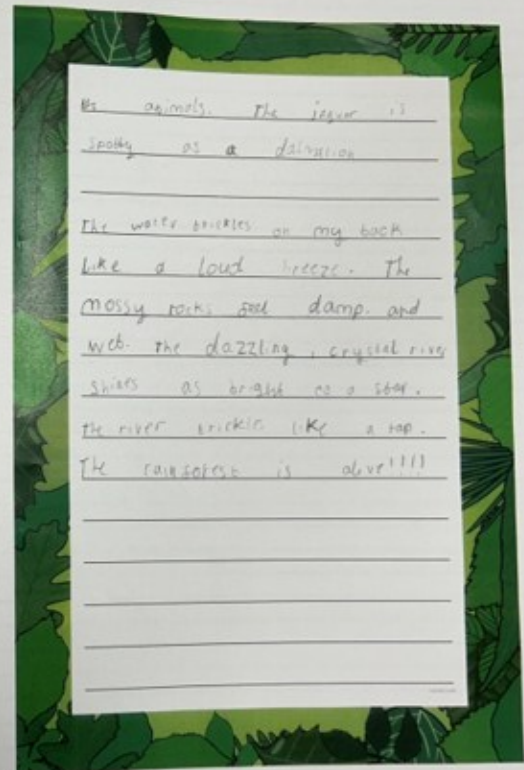 animals. The jeguar is
spotty as a dalmation
The water brickles on my back
Like a loud breeze. The
mossy rocks feel damp. and
wet. The dazzling, crystal river
Shines as bright as a star.
the river brickles like a tap.
The rainforest is alive!!!!